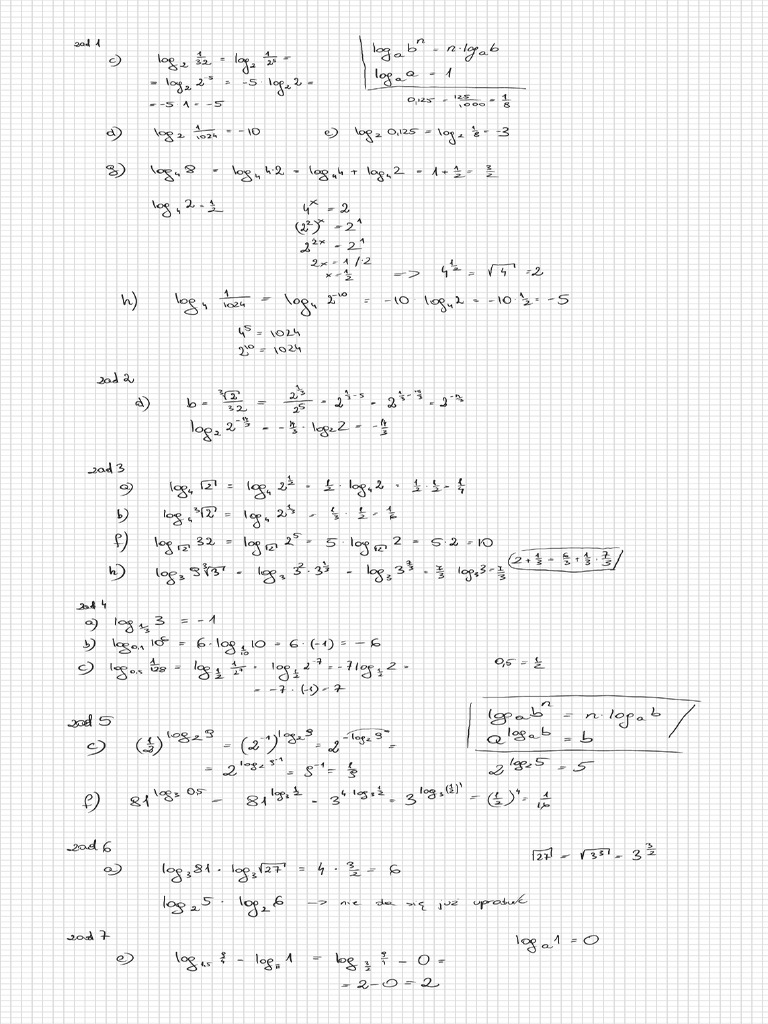 zad 1
c) log₂ 1/32 = log₂ 1/2⁵ =
= log₂ 2⁻⁵ = -5 log₂ 2 =
= -5 · 1 = -5
logₐ bⁿ = n · logₐ b
logₐ a = 1
0,125 = 125/1000 = 1/8
d) log₂ 1/1024 = -10
e) log₂ 0,125 = log₂ 1/8 = -3
g) log₄ 8 = log₄ 4·2 = log₄ 4 + log₄ 2 = 1 + 1/2 = 3/2
log₄ 2 = 1/2
4ˣ = 2
(2²)ˣ = 2¹
2²ˣ = 2¹
2x = 1 /:2
x = 1/2
=> 4^(1/2) = √4 = 2
h) log₄ 1/1024 = log₄ 2⁻¹⁰ = -10 log₄ 2 = -10 · 1/2 = -5
4⁵ = 1024
2¹⁰ = 1024
zad 2
d) b = ³√2/32 = 2^(1/3)/2⁵ = 2^(1/3 - 5) = 2^(1/3 - 15/3) = 2^(-14/3)
log₂ 2^(-14/3) = -14/3 · log₂ 2 = -14/3
zad 3
a) log₄ √2 = log₄ 2^(1/2) = 1/2 · log₄ 2 = 1/2 · 1/2 = 1/4
b) log₄ ³√2 = log₄ 2^(1/3) = 1/3 · 1/2 = 1/6
f) log_√2 32 = log_√2 2⁵ = 5 · log_√2 2 = 5 · 2 = 10
h) log₃ 9³√3 = log₃ 3² · 3^(1/3) = log₃ 3^(7/3) = 7/3 log₃ 3 = 7/3
2 + 1/3 = 6/3 + 1/3 = 7/3
zad 4
a) log_(1/3) 3 = -1
b) log_0,1 10⁶ = 6 · log_(1/10) 10 = 6 · (-1) = -6
c) log_0,5 1/128 = log_(1/2) 1/2⁷ = log_(1/2) 2⁻⁷ = -7 log_(1/2) 2 =
= -7 · (-1) = 7
0,5 = 1/2
zad 5
c) (1/2)^(log₂ 9) = (2⁻¹)^(log₂ 9) = 2^(-log₂ 9) =
= 2^(log₂ 9⁻¹) = 9⁻¹ = 1/9
logₐ bⁿ = n · logₐ b
a^(logₐ b) = b
2^(log₂ 5) = 5
f) 81^(log₃ 0,5) = 81^(log₃ 1/2) = 3^(4 log₃ 1/2) = 3^(log₃ (1/2)⁴) = (1/2)⁴ = 1/16
zad 6
a) log₃ 81 · log₃ √27 = 4 · 3/2 = 6
√27 = √3³ = 3^(3/2)
log₂ 5 · log₂ 6 -> nie da się już uprościć
zad 7
e) log_1,5 9/4 - log_π 1 = log_(3/2) 9/4 - 0 =
= 2 - 0 = 2
logₐ 1 = 0